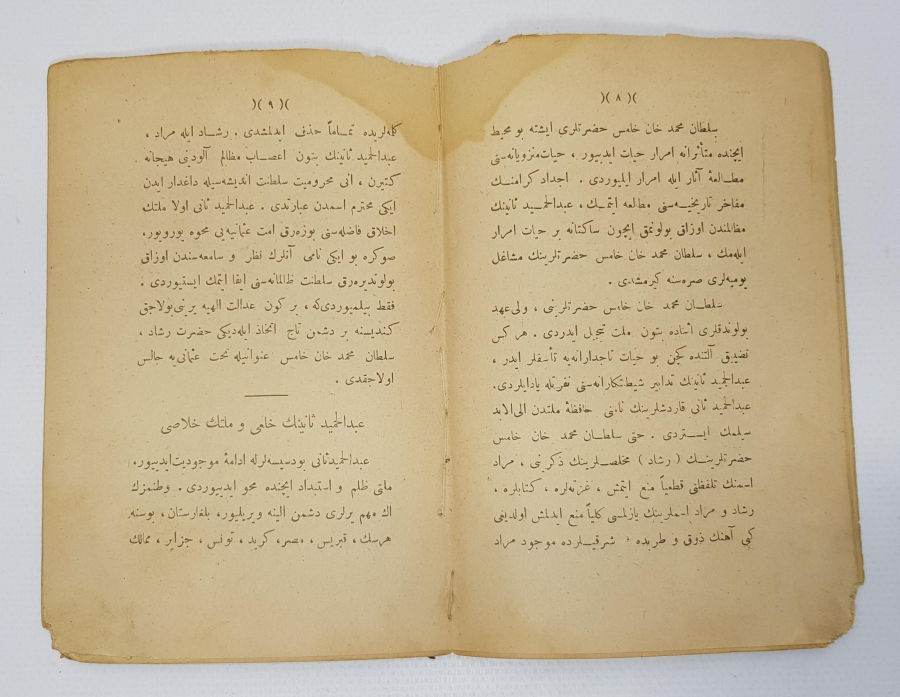 )( ٨ )(
سلطان محمد خان خامس حضرتلری ایشته بو محیط
ایچنده متأثرانه امرار حیات ایدییور ، حیات منزویانه‌سنی
مطـالعهٔ آثار ایله امرار ایلیوردی . اجداد کرامنـك
مفاخر تاریخیـه‌سنی مطالعه ایتمـك ، عبدالحمـید ثانینك
مظالمندن اوزاق بولونمق ایچون ساکتانه بر حیات امرار
ایله‌مك ، سلطان محمد خان خامس حضرتلرینك مشاغل
یومیه‌لری صره‌سنه کیرمشدی .
سلطـان محمد خان خامس حضرتلرینی ، ولی عهد
بولوندقلری اثناده بتون ملت تبجیل ایدردی . هرکس
تضییق آلتنده کچن بو حیات تاجدارانه‌یه تأسفلر ایدر ،
عبدالحمید ثانینك تدابیر شیطنتکارانه‌سنی نفرتله یادایلردی.
عبدالحمید ثانی قارداشلرینك نامنی حافظهٔ ملتدن الی‌الابد
سیلمك ایستردی . حتی سلطـان محمد خان خامس
حضرتلرینـك ( رشاد ) مخلصـلرینك ذکرینی ، مراد
اسمنك تلفظنی قطعیاً منع ایتمش ، غزته‌لره ، کتابلره ،
رشاد و مراد اسملرینك یازلمسی کلیاً منع ایدلمش اولدیغی
کبی آهنك ذوق و طربده شرقیـلرده موجود مراد
)( ٩ )(
کله‌لریده تمـاماً حذف ایدلمشدی . رشـاد ایله مراد ،
عبدالحمید ثانینك بتون اعصـاب مظالم آلودینی هیجانه
کتیرن ، انی محرومیت سلطنت اندیشه‌سیله داغدار ایدن
ایکی محترم اسمدن عبارتدی . عبدالحمید ثانی اولا ملتك
اخلاق فاضله‌سنی بوزه‌رق امت عثمانیه‌یی محوه یورویور،
صوکره بو ایکی نامی آنلرك نظر و سامعه‌سندن اوزاق
بولوندیره‌رق سلطنت ظالمانه‌سنی ابقا ایتمك ایستیوردی .
فقط بیلمیوردی‌که ، بر کون عدالت الهیه یرینی بولاجق
کندیسنه بر دشمن تاج اتخاذ ایله‌دیکی حضرت رشاد ،
سلطان محمد خان خامس عنوانیله تخت عثمانی‌یه جالس
اولاجقدی .
عبدالحمید ثانینك خلعی و ملتك خلاصی
عبدالحمیدثانی بودسیسه‌لرله ادامهٔ موجودیت‌ایدییور،
ملتی ظلم و استبداد ایچنده محو ایدییوردی . وطنمزك
اك مهم یرلری دشمن الینه ویریلیور، بلغارستان، بوسنه
هرسك ، قبریس ، مصر، کرید ، تونس ، جزایر ، ممالك